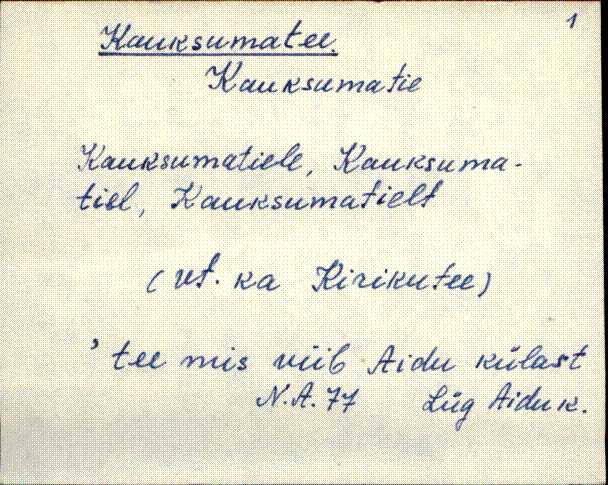 1
Kauksumatee.
Kauksumatie
Kauksumatiele, Kauksuma-
tiel, Kauksumatielt
(vt. ka Kirikutee)
, tee mis viib Aidu külast
N.A. 77 Lüg Aidu k.